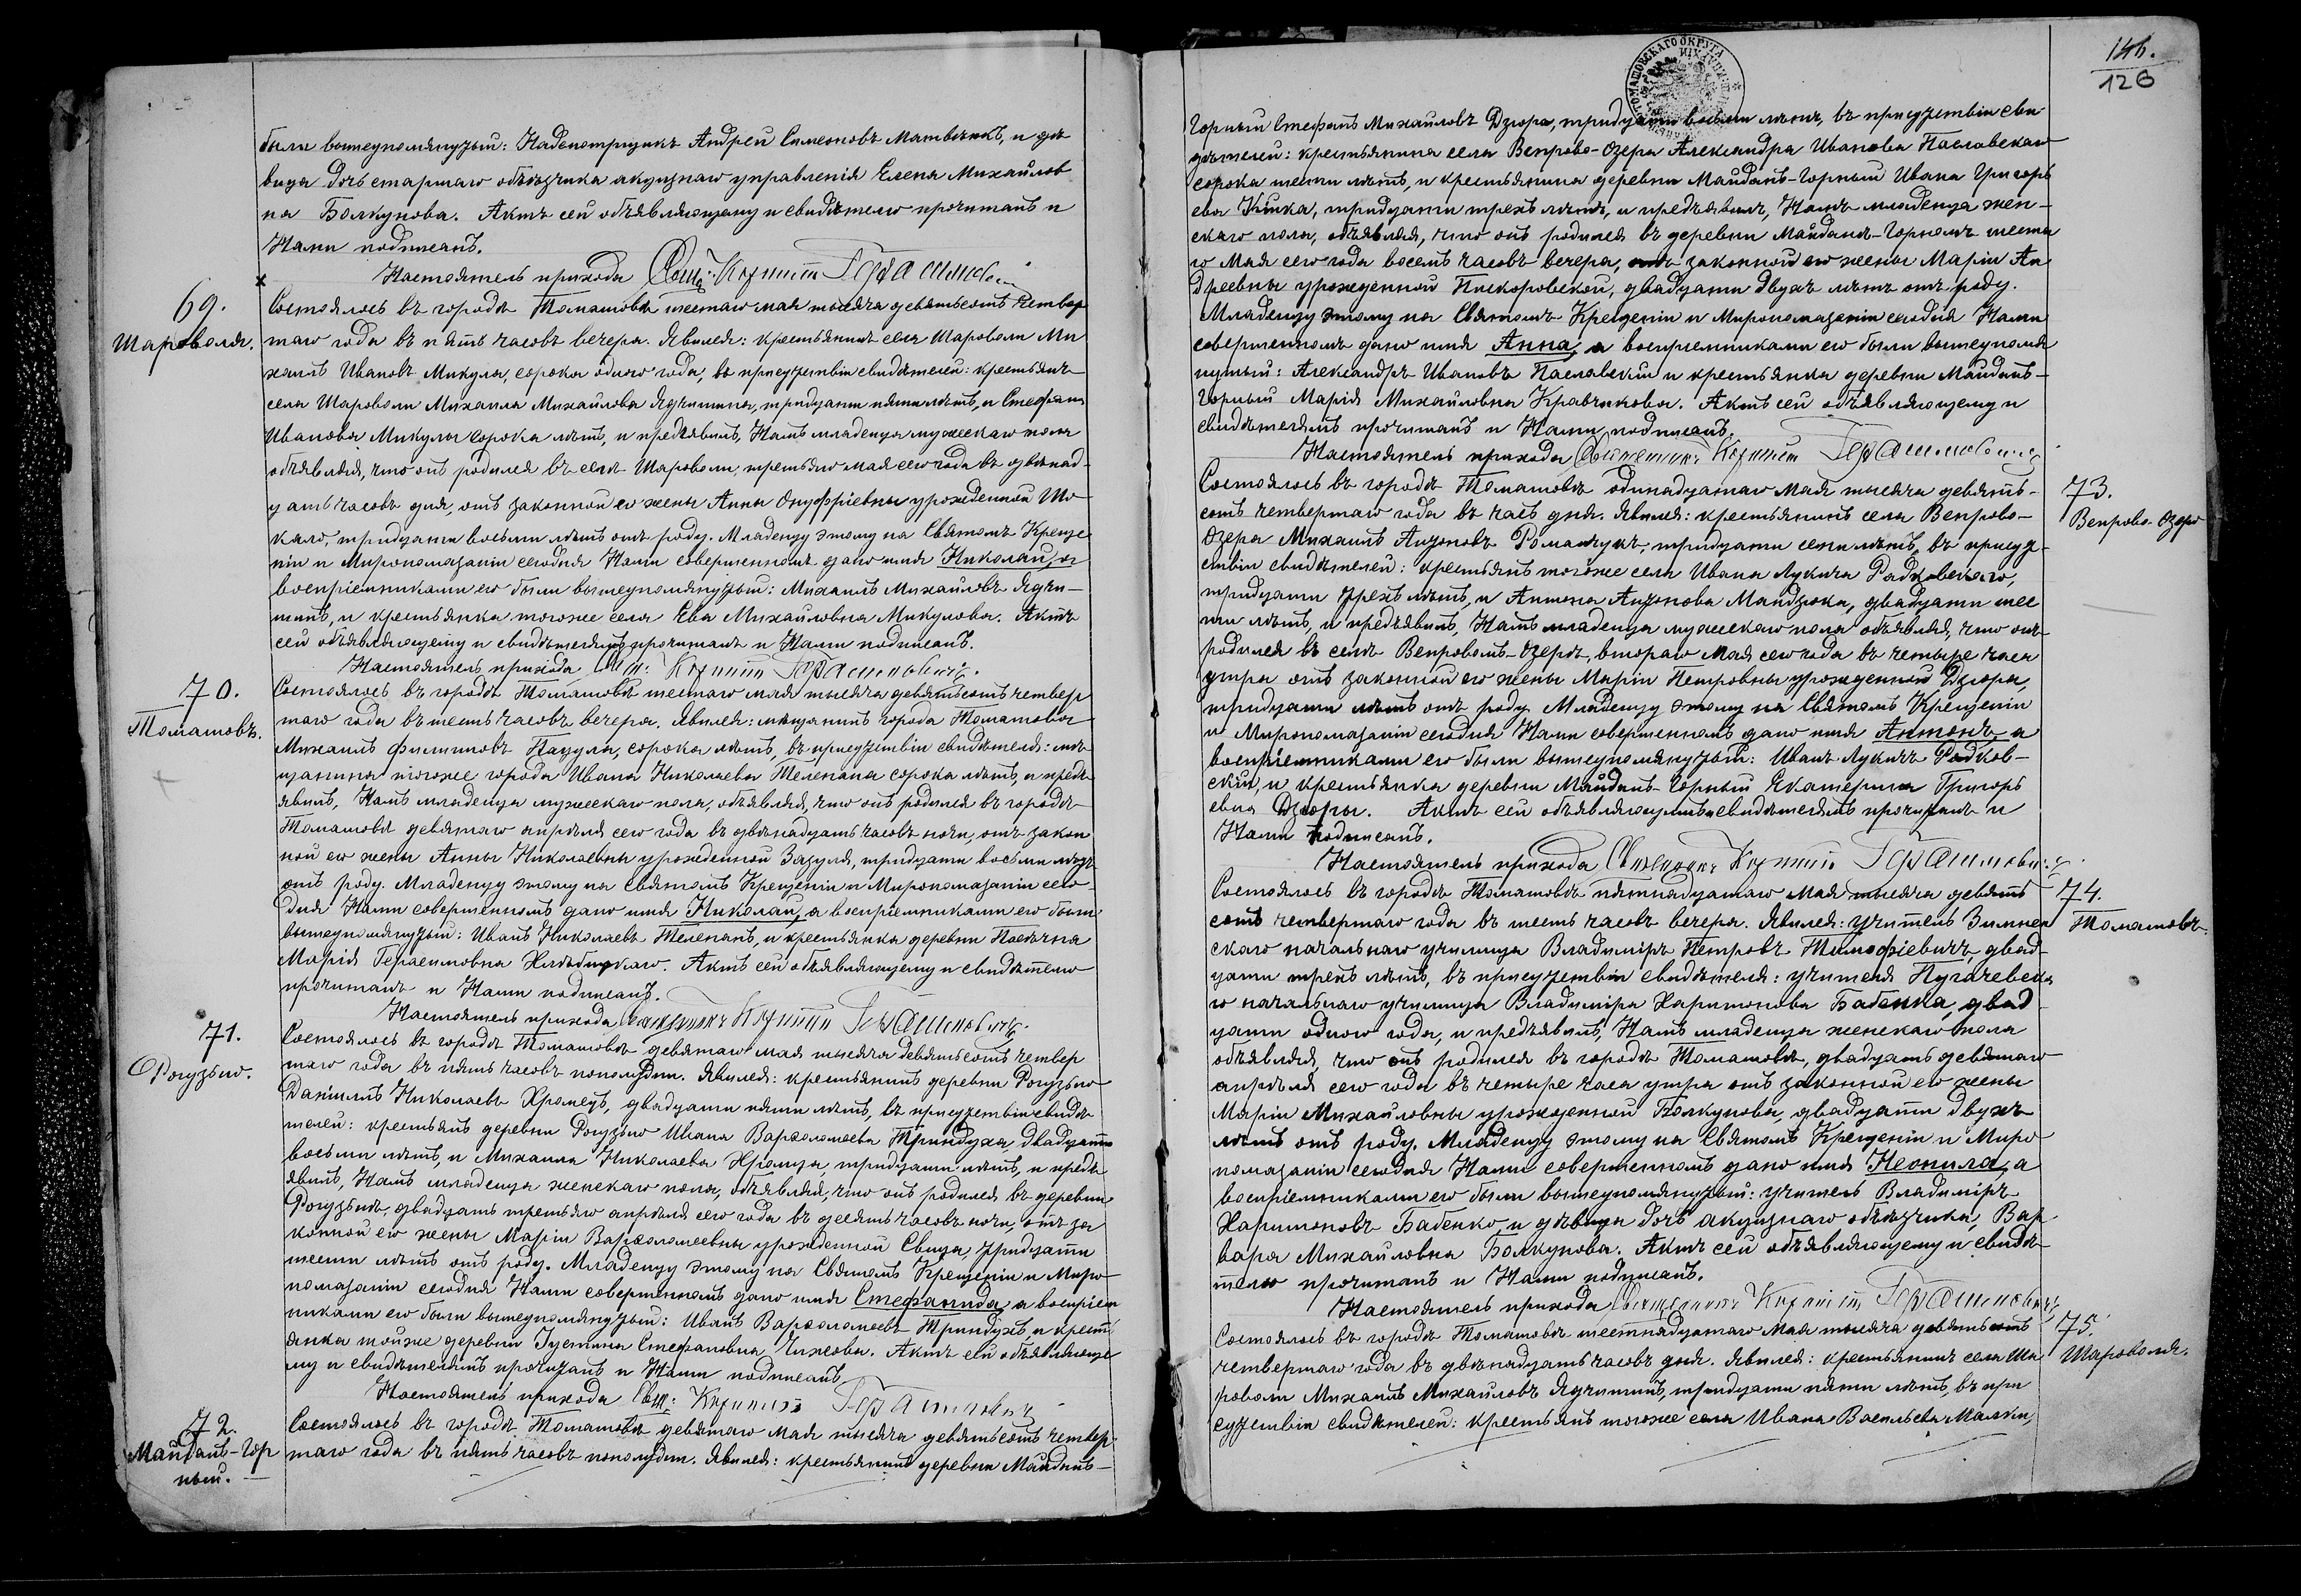 были вышеупомянутый: Надсмотрщикъ Андрей Симеоновъ Матвѣикъ, и дѣ
вица дочь старшаго объѣздчика акцизнаго управленія Елена Михайлов
на Болкунова. Актъ сей объявляющему и свидѣтелю прочитанъ и
Нами подписанъ.
Настоятель прихода Свящ: Корнилій Герасимовичъ
69.
Шароволя.
Состоялось въ городѣ Томашовѣ шестаго мая тысяча девятьсотъ четвер
таго года въ пять часовъ вечера. Явился: крестьянинъ села Шароволи Ми
хаилъ Ивановъ Микула, сорока одного года, въ присутствіи свидѣтелей: крестьянъ
села Шароволи Михаила Михайлова Ядчишина, тридцати пяти лѣтъ, и Стефана
Иванова Микулы сорока лѣтъ, и предъявилъ, Намъ младенца мужескаго пола
объявляя, что онъ родился въ селѣ Шароволи, третьяго мая сего года въ двѣнад-
цать часовъ дня, отъ законной его жены Анны Онуфріевны урожденной Шо-
кало, тридцати восьми лѣтъ отъ роду. Младенцу этому на Святомъ Креще
ніи и Миропомазаніи сегодня Нами совершенномъ дано имя Николай, а
воспріемниками его были вышеупомянутый: Михаилъ Михайловъ Ядчи-
шинъ, и крестьянка тогоже села Ева Михайловна Микулова. Актъ
сей объявляющему и свидѣтелямъ прочитанъ и Нами подписанъ.
Настоятель прихода Свящ: Корнилій Герасимовичъ.
70.
Томашовъ.
Состоялось въ городѣ Томашовѣ шестаго мая тысяча девятьсотъ четвер
таго года въ шесть часовъ вечера. Явился: мѣщанинъ города Томашова
Михаилъ Филипповъ Пацула, сорока лѣтъ, въ присутствіи свидѣтеля: мѣ
щанина тогоже города Ивана Николаева Телепана сорока лѣтъ, и предъ
явилъ, Намъ младенца мужескаго пола, объявляя, что онъ родился въ городѣ
Томашовѣ девятаго апрѣля сего года въ двѣнадцать часовъ ночи, отъ закон
ной его жены Анны Николаевны урожденной Зазуля, тридцати восьми лѣтъ
отъ роду. Младенцу этому на Святомъ Крещеніи и Миропомазаніи сего-
дня Нами совершенномъ дано имя Николай, а воспріемниками его были
вышеупомянутый: Иванъ Николаевъ Телепанъ, и крестьянка деревни Пасѣчна
Марія Герасимовна Актъ сей объявляющему и свидѣтелю
прочитанъ и Нами подписанъ.
Настоятель прихода Священникъ Корнилій Герасимовичъ.
71.
Рогузьно.
Состоялось въ городѣ Томашовѣ девятаго мая тысяча девятьсотъ четвер
таго года въ пять часовъ пополудни. Явился: крестьянинъ деревни Рогузьно
Даніилъ Николаевъ Хромецъ, двадцати пяти лѣтъ, въ присутствіи свидѣ
телей: крестьянъ деревни Рогузьно Ивана Варѳоломеева Триндуха, двадцати
восьми лѣтъ, и Михаила Николаева Хромца, тридцати лѣтъ, и предъ
явилъ, Намъ младенца женскаго пола, объявляя, что онъ родился въ деревни
Рогузьнѣ, двадцать третьяго апрѣля сего года въ десять часовъ ночи, отъ за
конной его жены Маріи Варѳоломеевны урожденной Свища, тридцати
шести лѣтъ отъ роду. Младенцу этому на Святомъ Крещеніи и Миро
помазаніи сегодня Нами совершенномъ дано имя Стефанида, а воспріем
никами его были вышеупомянутый: Иванъ Варѳоломеевъ Триндухъ, и крест
янка тойже деревни Іустина Стефановна Чижова. Актъ сей объявляюще
му и свидѣтелямъ прочитанъ и Нами подписанъ.
Настоятель прихода Свящ: Корнилій Герасимовичъ
72.
Майданъ-Гор
ный.
Состоялось въ городѣ Томашовѣ девятаго мая тысяча девятьсотъ четвер
таго года въ пять часовъ пополудни. Явился: крестьянинъ деревни Майданъ-
146.
126
ТОМАШОВСКАГО ОКРУГА
Горный Стефанъ Михайловъ Дзюра, тридцати восьми лѣтъ, въ присутствіи сви
дѣтелей: крестьянина села Вепрово-Озера Александра Иванова Паславскаго
сорока шести лѣтъ, и крестьянина деревни Майданъ-Горный Ивана Григорь
ева Кика, тридцати трехъ лѣтъ, и предъявилъ, Намъ младенца жен-
скаго пола, объявляя, что онъ родился въ деревни Майданъ-Горномъ шеста
го Мая сего года восемь часовъ вечера, отъ законной его жены Маріи Ан
дреевны урожденной Пискоровской, двадцати двухъ лѣтъ отъ роду.
Младенцу этому на Святомъ Крещеніи и Миропомазаніи сегодня Нами
совершенномъ дано имя Анна, а воспріемниками его были вышеупомя
нутый: Александръ Ивановъ Паславскій и крестьянка деревни Майданъ-
Горный Марія Михайловна Кравчикова. Актъ сей объявляющему и
свидѣтелямъ прочитанъ и Нами подписанъ.
Настоятель прихода Священникъ Корнилій Герасимовичъ
73.
Вепрово-Озеро
Состоялось въ городѣ Томашовѣ одинадцатаго Мая тысяча девять-
сотъ четвертаго года въ часъ дня. Явился: крестьянинъ села Вепрово-
Озера Михаилъ Антоновъ Романчукъ, тридцати семи лѣтъ, въ присут-
ствіи свидѣтелей: крестьянъ тогоже села Ивана Лукича Радковскаго,
тридцати трехъ лѣтъ, и Антона Антонова Мандзюка, двадцати шес
ти лѣтъ, и предъявилъ, Намъ младенца мужескаго пола объявляя, что онъ
родился въ селѣ Вепровомъ-Озерѣ, втораго Мая сего года въ четыре часа
утра отъ законной его жены Маріи Петровны урожденной Дзюра,
тридцати лѣтъ отъ роду. Младенцу этому на Святомъ Крещеніи
и Миропомазаніи сегодня Нами совершенномъ дано имя Антонъ, а
воспріемниками его были вышеупомянутый: Иванъ Лукичъ Радков-
скій, и крестьянка деревни Майданъ-Горный Екатерина Григорь
евна Дзюры. Актъ сей объявляющему и свидѣтелямъ прочитанъ и
Нами подписанъ.
Настоятель прихода Священникъ Корнилій Герасимовичъ.
74.
Томашовъ.
Состоялось въ городѣ Томашовѣ пятнадцатаго Мая тысяча девять
сотъ четвертаго года въ шесть часовъ вечера. Явился: учитель Зимнен
скаго начальнаго училища Владиміръ Петровъ Тимофіевичъ, двад-
цати трехъ лѣтъ, въ присутствіи свидѣтеля: учителя Пугачевска
го начальнаго училища Владиміра Харитонова Бабенка, двад
цати одного года, и предъявилъ, Намъ младенца женскаго пола
объявляя, что онъ родился въ городѣ Томашовѣ, двадцать девятаго
апрѣля сего года въ четыре часа утра отъ законной его жены
Маріи Михайловны урожденной Болкунова, двадцати двухъ
лѣтъ отъ роду. Младенцу этому на Святомъ Крещеніи и Миро
помазаніи сегодня Нами совершенномъ дано имя Неонила, а
воспріемниками его были вышеупомянутый: учитель Владиміръ
Харитоновъ Бабенко, и дѣвица дочь акцизнаго объѣздчика, Вар
вара Михайловна Болкунова. Актъ сей объявляющему и свидѣ-
телю прочитанъ и Нами подписанъ.
Настоятель прихода Священникъ Корнилій Герасимовичъ
75.
Шароволя.
Состоялось въ городѣ Томашовѣ шестнадцатаго Мая тысяча девятьсотъ
четвертаго года въ двѣнадцать часовъ дня. Явился: крестьянинъ села Ша
роволи Михаилъ Михайловъ Ядчишинъ, тридцати пяти лѣтъ, въ при
сутствіи свидѣтелей: крестьянъ тогоже села Ивана Васильева Малки,